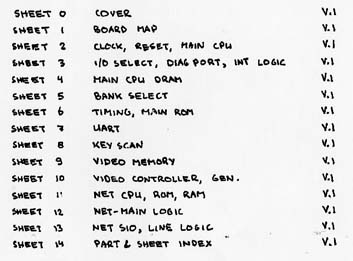 SHEET 0 COVER V.1
SHEET 1 BOARD MAP V.1
SHEET 2 CLOCK, RESET, MAIN CPU V.1
SHEET 3 I/O SELECT, DIAG PORT, INT LOGIC V.1
SHEET 4 MAIN CPU DRAM V.1
SHEET 5 BANK SELECT V.1
SHEET 6 TIMING, MAIN ROM V.1
SHEET 7 UART V.1
SHEET 8 KEY SCAN V.1
SHEET 9 VIDEO MEMORY V.1
SHEET 10 VIDEO CONTROLLER, GEN. V.1
SHEET 11 NET CPU, ROM, RAM V.1
SHEET 12 NET-MAIN LOGIC V.1
SHEET 13 NET SIO, LINE LOGIC V.1
SHEET 14 PART & SHEET INDEX V.1